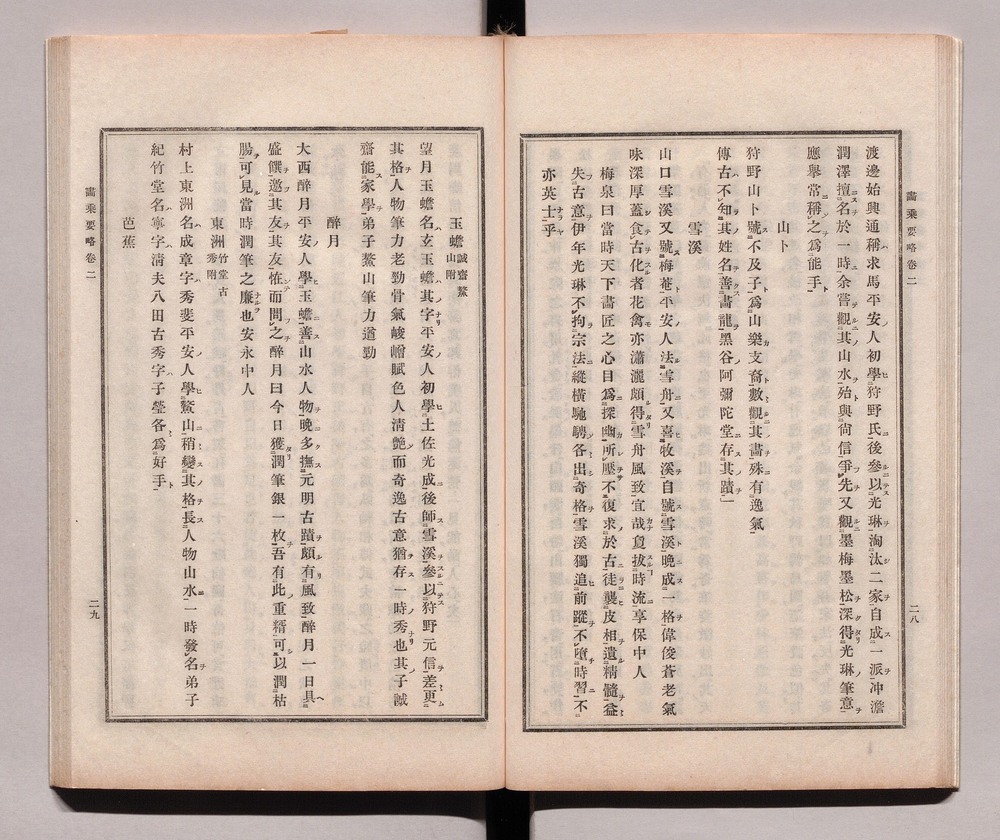 畫乘要略卷二
二八
渡邊始興通稱求馬平安人初學狩野氏後參以光琳淘汰二家自成一派冲澹
潤澤擅名於一時余嘗觀其山水殆與尙信爭先又觀墨梅墨松深得光琳筆意
應擧常稱之爲能手
山卜
狩野山卜號不及子爲山樂支裔數觀其畵殊有逸氣
傳古不知其姓名善畵龍黑谷阿彌陀堂存其蹟
雪溪
山口雪溪又號梅菴平安人法雪舟又喜牧溪自號雪溪晚成一格偉俊蒼老氣
味深厚蓋食古化者花禽亦瀟灑頗得雪舟風致宜哉夐拔時流享保中人
梅泉曰當時天下畵匠之心目爲探幽所壓不復求於古徒襲皮相遺精髓益
失古意伊年光琳不拘宗法縱橫馳騁各出奇格雪溪獨追前蹤不墮時習不
亦英士乎
玉蟾 誠齋鰲山附
望月玉蟾名玄玉蟾其字平安人初學土佐光成後師雪溪參以狩野元信差更
其格人物筆力老勁骨氣峻嶒賦色人淸艶而奇逸古意猶存一時秀也其子誠
齋能家學弟子鰲山筆力遒勁
醉月
大西醉月平安人學玉蟾善山水人物晚多撫元明古蹟頗有風致醉月一日具
盛饌邀其友其友恠而問之醉月曰今日獲潤筆銀一枚吾有此重糈可以潤枯
腸可見當時潤筆之廉也安永中人
東洲 竹堂古秀附
村上東洲名成章字秀斐平安人學鰲山稍變其格長人物山水一時發名弟子
紀竹堂名寧字淸夫八田古秀字子瑩各爲好手
芭蕉
畵乘要略卷二
二九